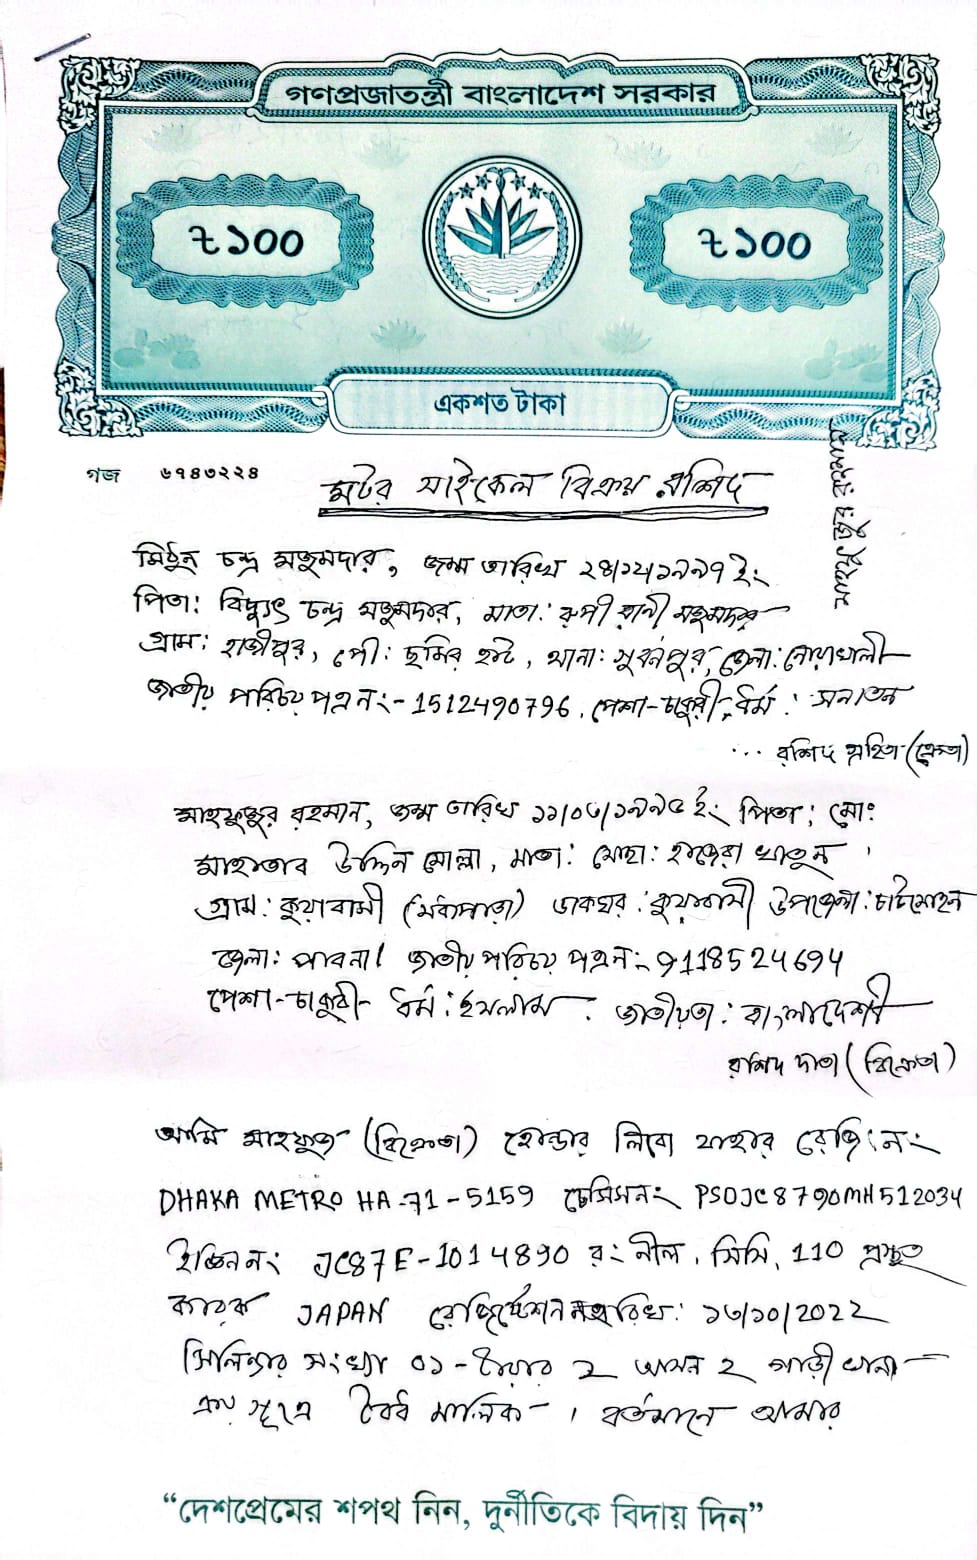 গণপ্রজাতন্ত্রী বাংলাদেশ সরকার
৳১০০
৳১০০
একশত টাকা
গজ ৬৭৪৩২২৪
মটর সাইকেল বিক্রয় রশিদ
মাহফুজুর রহমান
মিঠুন চন্দ্র মজুমদার, জন্ম তারিখ ২৪/১২/১৯৯৭ ইং
পিতা: বিদ্যুৎ চন্দ্র মজুমদার, মাতা: রুপী রানী মজুমদার
গ্রাম: হাজীপুর, পো: ছমির হাট, থানা: সুবর্নপুর, জেলা: নোয়াখালী
জাতীয় পরিচয় পত্র নং- 1512490796. পেশা-চাকুরী, ধর্ম: সনাতন
... রশিদ গ্রহিতা (ক্রেতা)
মাহফুজুর রহমান, জন্ম তারিখ ১১/০৬/১৯৯৫ ইং পিতা: মো:
মাহতাব উদ্দিন মোল্লা, মাতা: মোছা: হাজেরা খাতুন।
গ্রাম: কুয়াবাসী ডাকঘর: কুয়াবাসী উপজেলা: চাটমোহর
জেলা: পাবনা। জাতীয় পরিচয় পত্র নং- 9118524694
পেশা-চাকুরী- ধর্ম: ইসলাম. জাতীয়তা: বাংলাদেশী
রশিদ দাতা (বিক্রেতা)
আমি মাহফুজ (বিক্রেতা) হোন্ডার লিবো যাহার রেজি: নং
DHAKA METRO HA-71-5159 চেসিস নং PSOJC8790MH512034
ইঞ্জিন নং JC87E-1014890 রং নীল, সিসি, 110 প্রস্তুত
কারক JAPAN রেজিস্ট্রেশন তারিখ: ১৩/১০/2022
সিলিন্ডার সংখ্যা ০১- টায়ার 2 আসন 2 গাড়ী খানা
ক্রয় সূত্রে বৈধ মালিক-। বর্তমানে আমার
“দেশপ্রেমের শপথ নিন, দুর্নীতিকে বিদায় দিন”